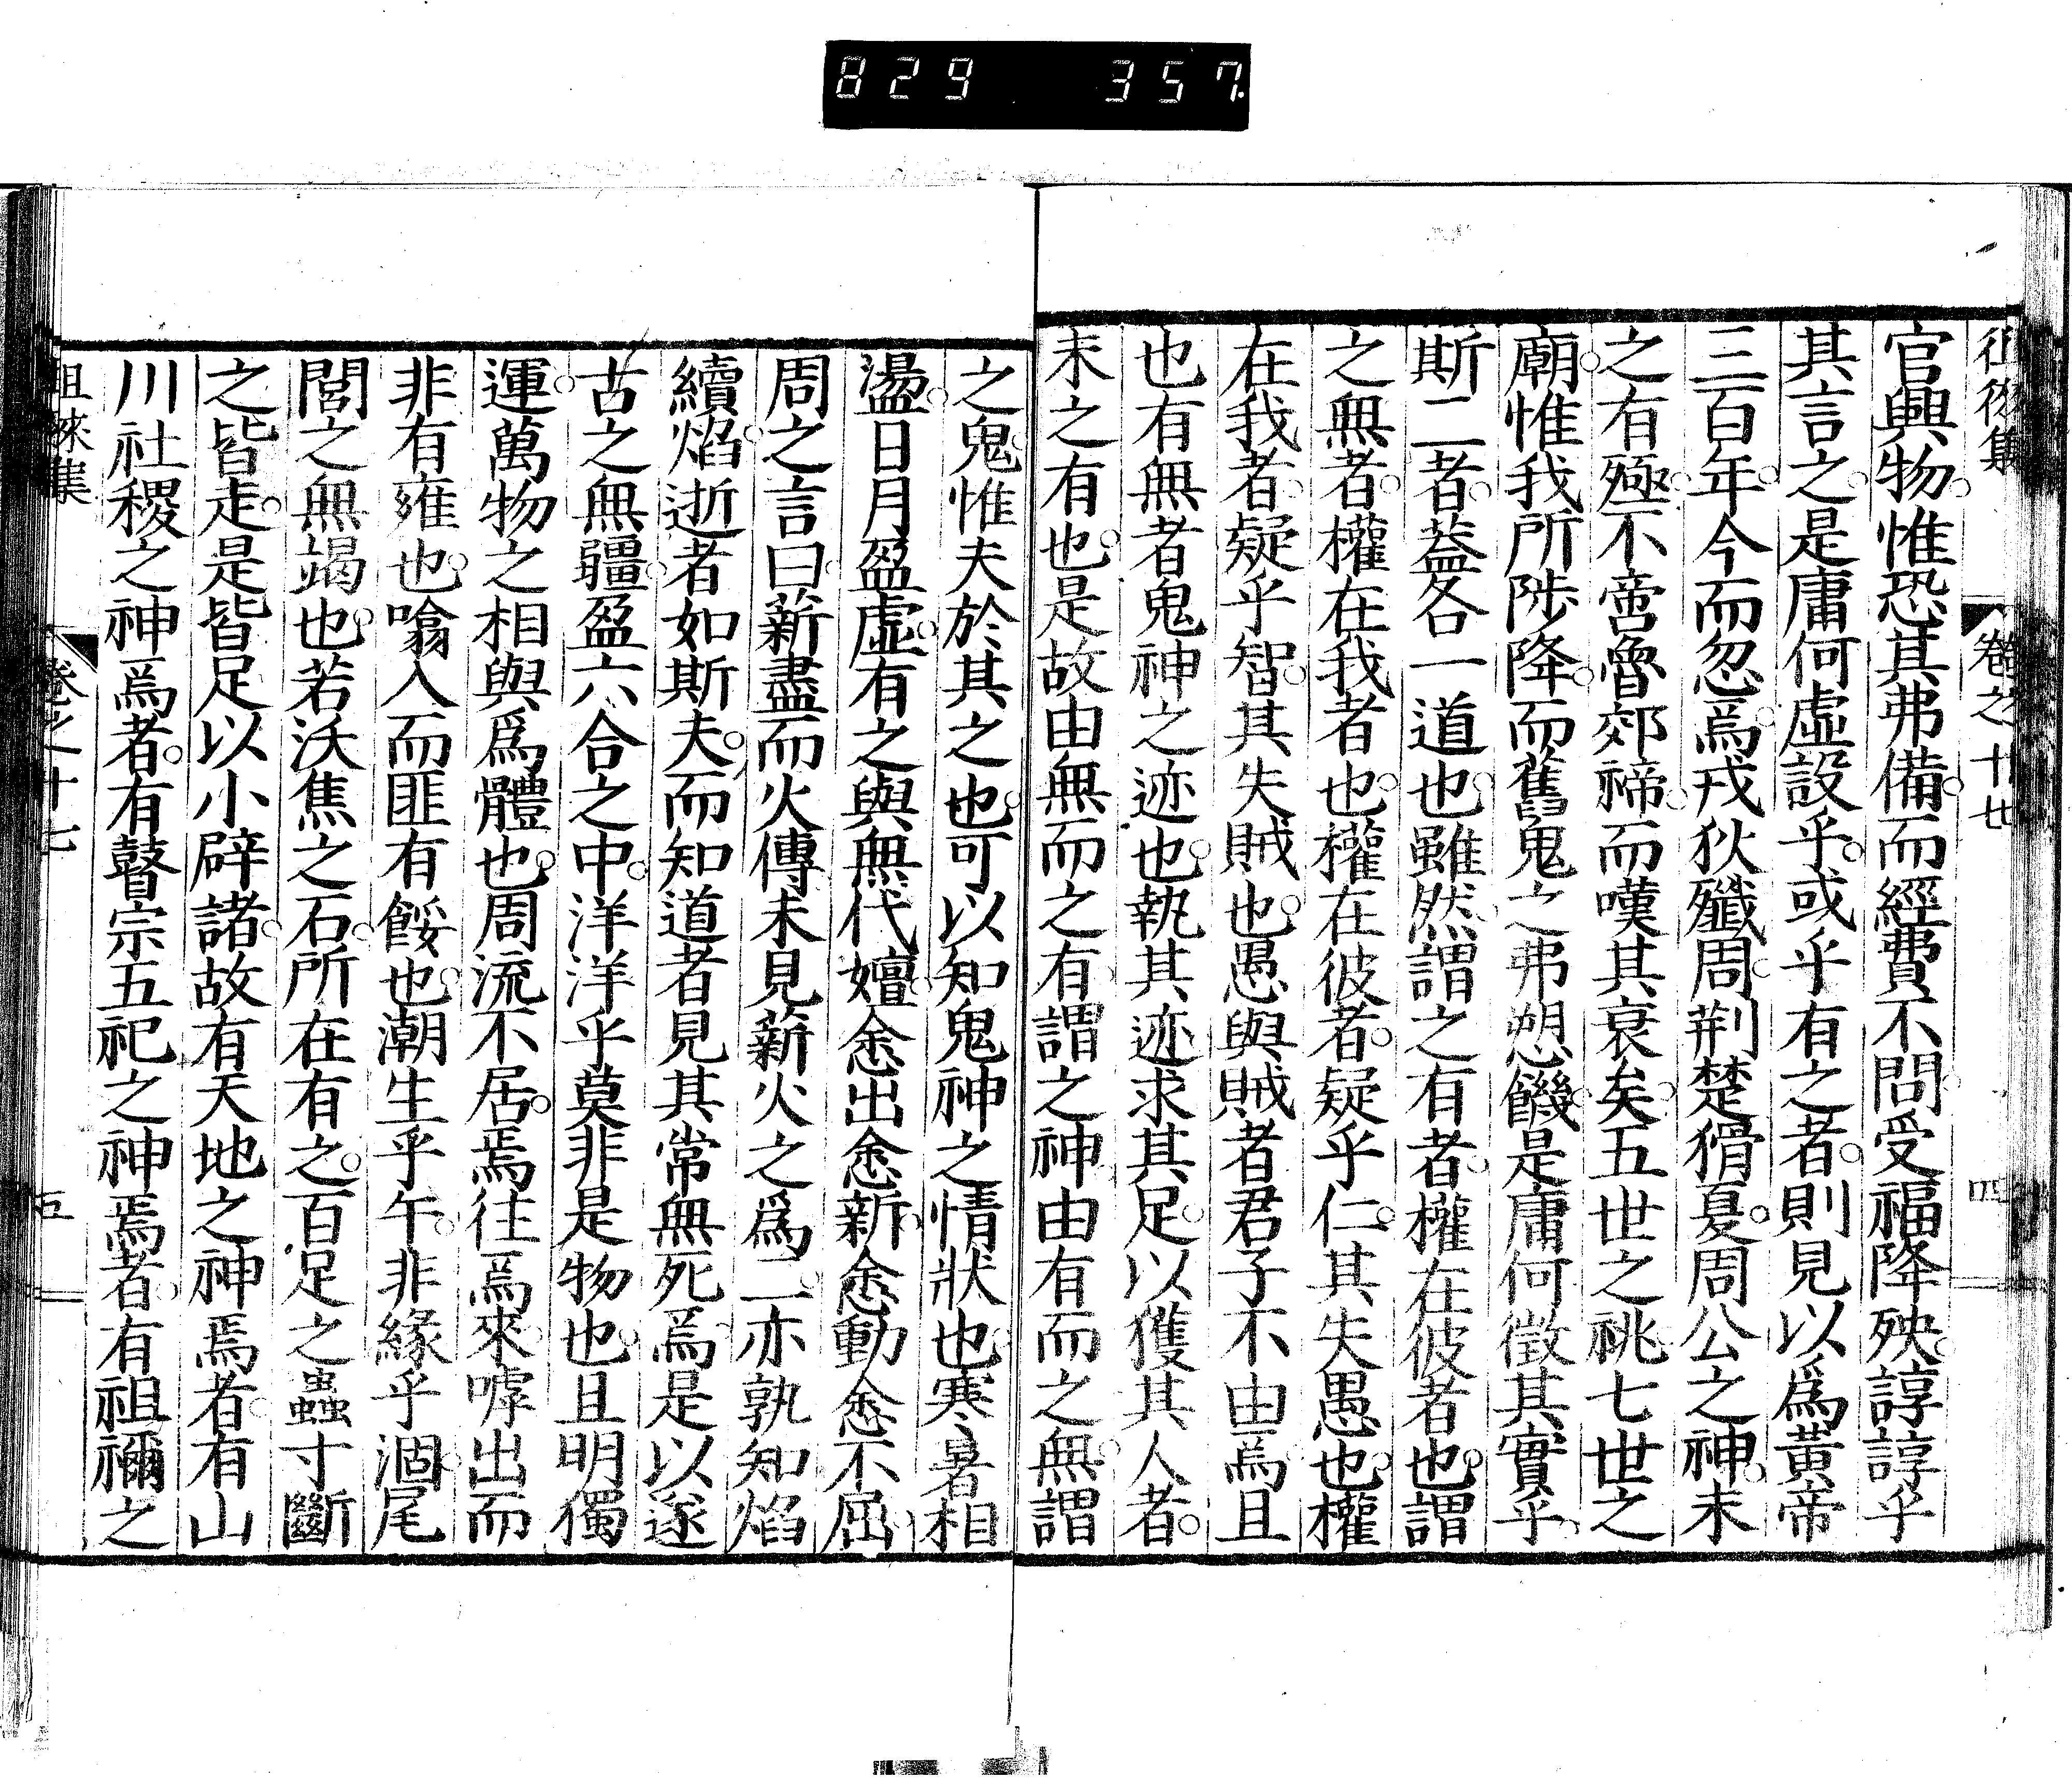 829 357
徂徠集 卷之十七 四
官興物惟恐其弗備而經費不問受福降殃諄諄乎
其言之是庸何虛設乎或乎有之者則見以爲黃帝
三百年今而忽焉戎狄殲周荆楚猾夏周公之神未
之有殛不啻魯郊禘而嘆其衰矣五世之祧七世之
廟惟我所陟降而舊鬼之弗愬饑是庸何徵其實乎
斯二者蓋各一道也雖然謂之有者權在彼者也謂
之無者權在我者也權在彼者疑乎仁其失愚也權
在我者疑乎智其失賊也愚與賊者君子不由焉且
也有無者鬼神之迹也執其迹求其足以獲其人者
未之有也是故由無而之有謂之神由有而之無謂
之鬼惟夫於其之也可以知鬼神之情狀也寒暑相
盪日月盈虛有之與無代嬗悆出悆新悆動悆不屈
周之言曰薪盡而火傳未見薪火之爲二亦孰知焰
續焰逝者如斯夫而知道者見其常無死焉是以邃
古之無疆盈六合之中洋洋乎莫非是物也且明獨
運萬物之相與爲體也周流不居焉往焉來嘑出而
非有雍也噏入而匪有餒也潮生乎午非緣乎涸尾
閭之無竭也若沃焦之石所在有之百足之蟲寸斷
之皆走是皆足以小辟諸故有天地之神焉者有山
川社稷之神焉者有瞽宗五祀之神焉者有祖禰之
徂徠集 卷之十七 五